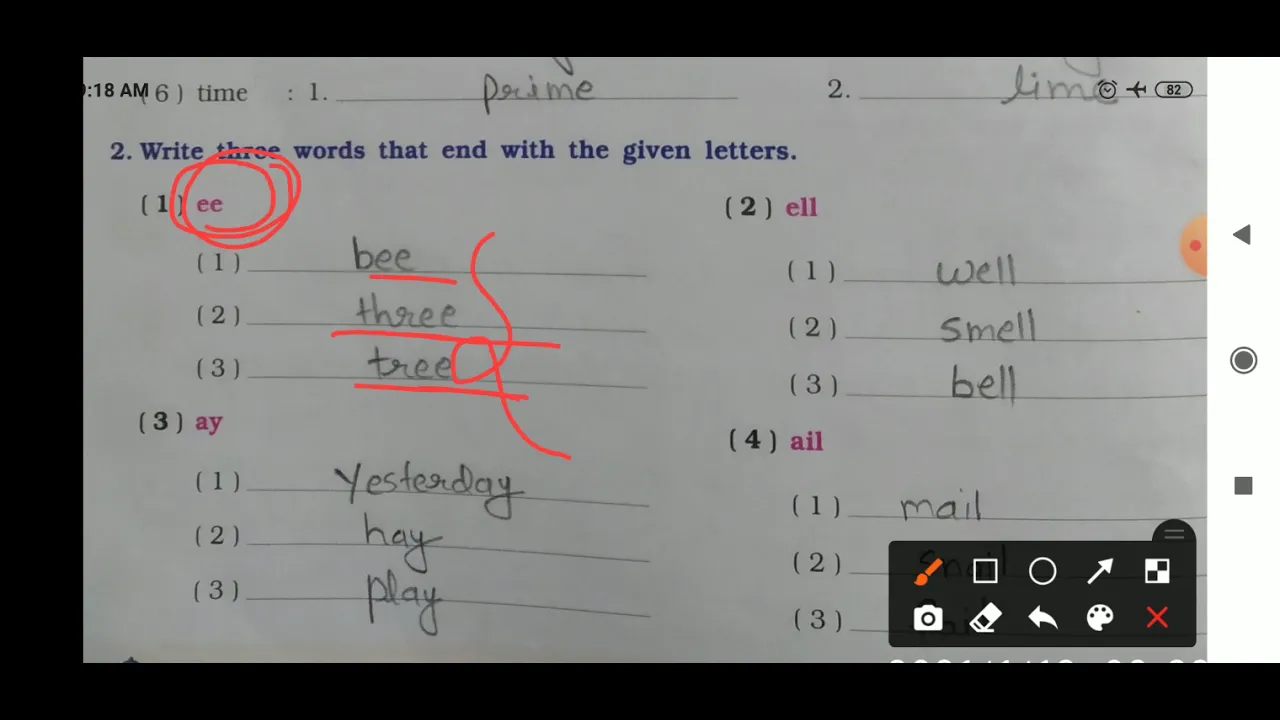 9:18 AM 82
(6) time : 1. prime 2. lime
2. Write three words that end with the given letters.
(1) ee
(1) bee
(2) three
(3) tree
(2) ell
(1) well
(2) smell
(3) bell
(3) ay
(1) Yesterday
(2) hay
(3) play
(4) ail
(1) mail
(2) Snail
(3)